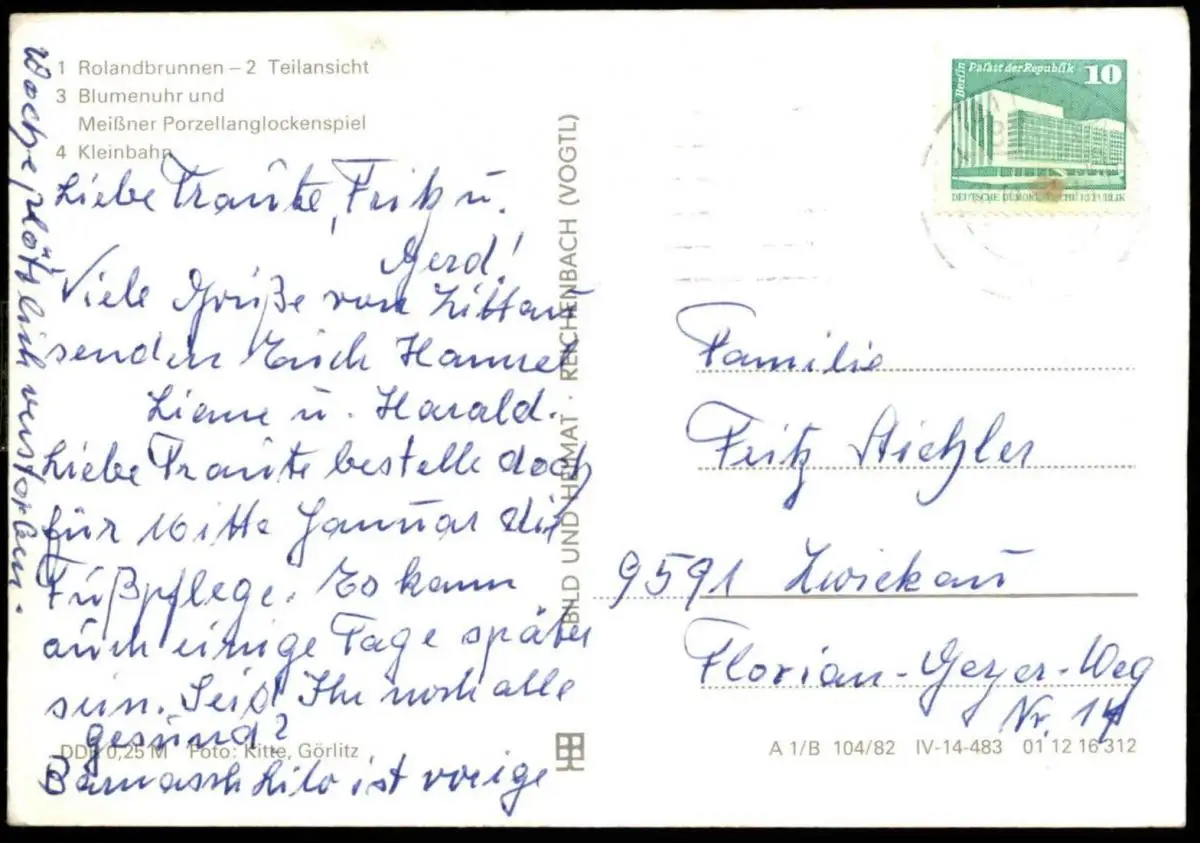 1 Rolandbrunnen – 2 Teilansicht
3 Blumenuhr und
Meißner Porzellanglockenspiel
4 Kleinbahn
Liebe Traute, Fritz u.
Gerd!
Viele Grüße von Zittau
senden Euch Hannel
Liane u. Harald.
Liebe Traute bestelle doch
für Mitte Januar die
Fußpflege. Es kann
auch einige Tage später
sein. Seid Ihr noch alle
gesund?
Lilo ist vorige
Woche plötzlich verstorben.
DDR 0,25 M Foto: Kitte, Görlitz
BILD UND HEIMAT · REICHENBACH (VOGTL)
Berlin Palast der Republik 10
DEUTSCHE DEMOKRATISCHE REPUBLIK
Familie
Fritz Stichler
9591 Zwickau
Florian-Geyer-Weg
Nr. 14
A 1/B 104/82 IV-14-483 01 12 16 312